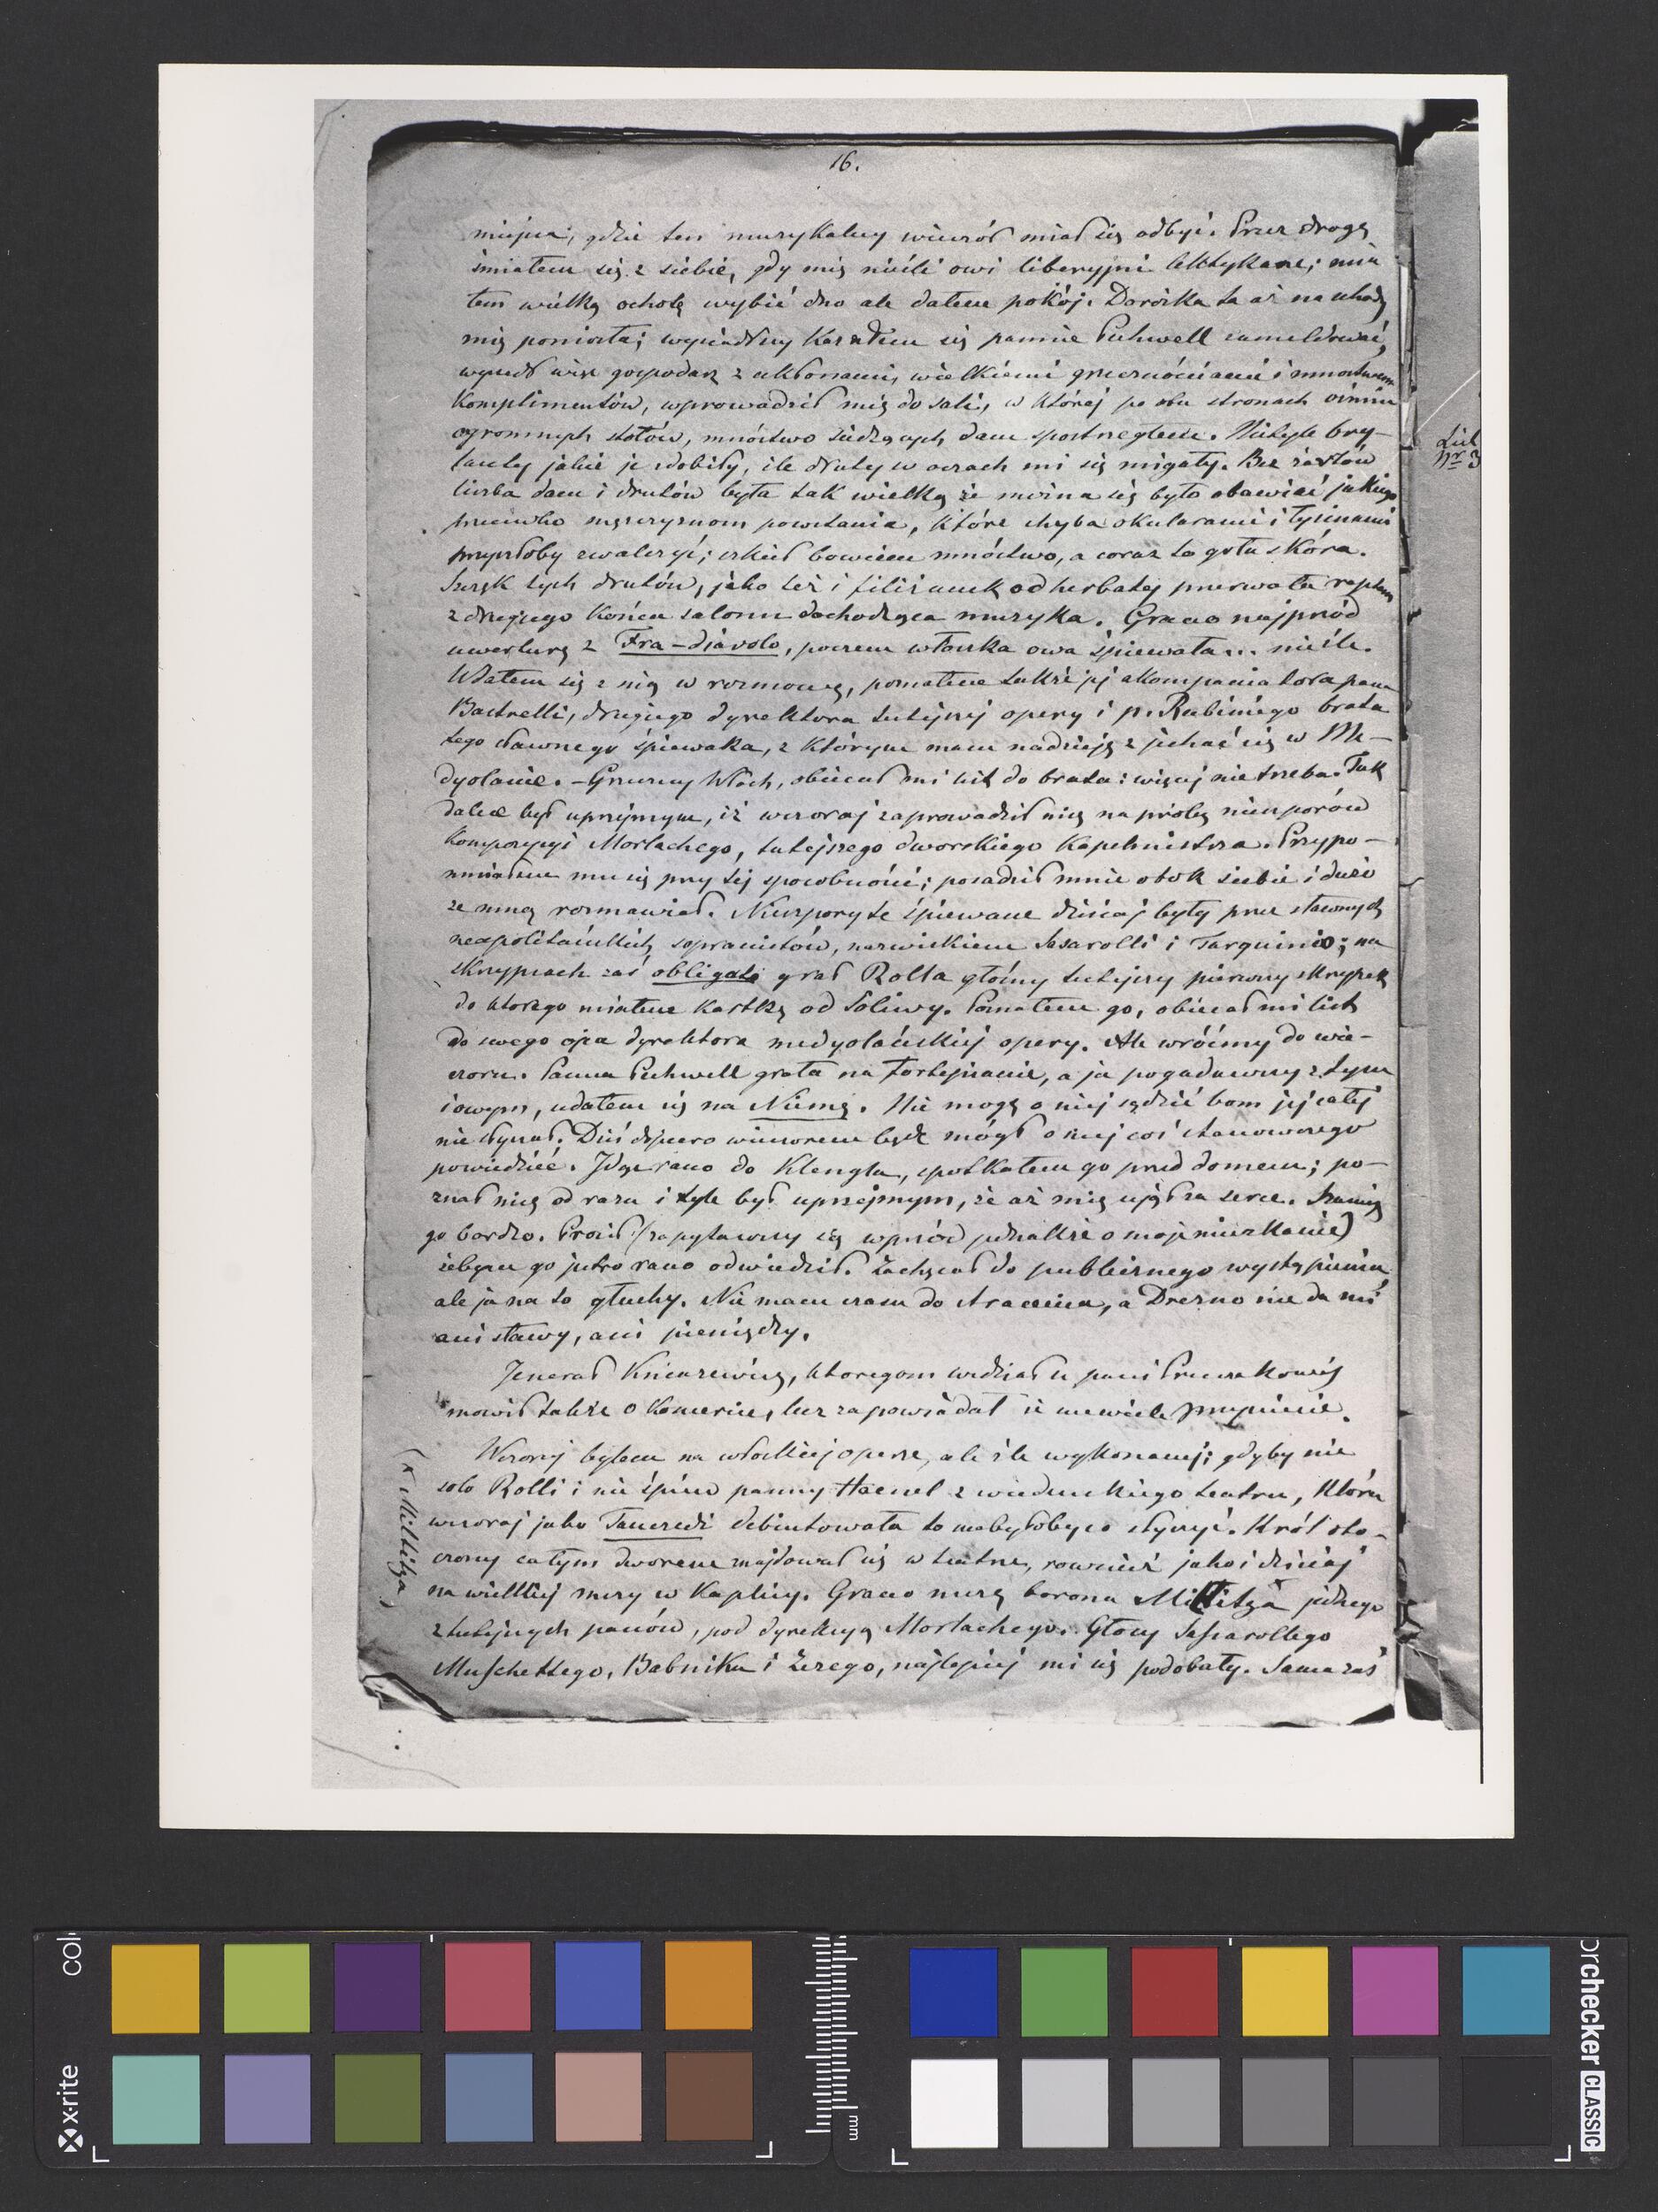 16.
miejsca, gdzie ten muzykalny wieczór miał się odbyć. Przez drogę
śmiałem się z siebie, gdy mię nieśli owi liberyjni lektykarze; mia
łem wielką ochotę wybić dno ale dałem pokój. Dorożka ta aż na schody
mię poniosła; wysiadłszy kazałem się pannie Pechwell zameldować,
wyszedł więc gospodarz z ukłonami, wielkiemi grzecznościami i mnóstwem
komplimentów, wprowadził mię do sali, w której po obu stronach ośmiu
ogromnych stołów, mnóstwo siedzących dam spostrzegłem. Nietyle bry-
lanty jakie je zdobiły, ile druty w oczach mi się migały. Bez żartów
liczba dam i drutów była tak wielką że można się było obawiać jakiego
przeciwko mężczyznom powstania, które chyba okularami i łysinami
przyszłoby zwalczyć; szkieł bowiem mnóstwo, a coraz to goła skóra.
Szczęk tych drutów, jako też i filiżanek od herbaty przerwała raptem
z drugiego końca salonu dochodząca muzyka. Grano najprzód
uwerturę z Fra-diavolo, poczem włoszka owa śpiewała... nieźle.
Wdałem się z nią w rozmowę, poznałem także jej akompaniatora pana
Rastrelli, drugiego dyrektora tutejszej opery i p. Rubiniego brata
tego sławnego śpiewaka, z którym mam nadzieję zjechać się w Me-
dyolanie. – Grzeczny Włoch, obiecał mi list do brata: więcej nie trzeba. Tak
dalece był uprzejmym, iż wczoraj zaprowadził mię na próbę nieszporów
kompozycyi Morlachego, tutejszego dworskiego kapelmistrza. Przypo-
mniałem mu się przy tej sposobności; posadził mnie obok siebie i dużo
ze mną rozmawiał. Nieszpory te śpiewane dzisiaj były przez sławnych
neapolitańskich sopranistów, nazwiskiem Sasarolli i Tarquinio; na
skrzypcach zaś obligato grał Rolla główny tutejszy pierwszy skrzypek
do ktorego miałem kartkę od Soliwy. Poznałem go, obiecał mi list
do swego ojca dyrektora medyolańskiej opery. Ale wróćmy do wie-
czoru. Panna Pechwell grała na fortepianie, a ja pogadawszy z tym
i owym, udałem się na Niemę. Nie mogę o niej sądzić bom jej całej
nie słyszał. Dziś dopiero wieczorem będę mógł o niej coś stanowczego
powiedzieć. Idąc rano do Klengla, spotkałem go przed domem; po-
znał mię od razu i tyle był uprzejmym, że aż mię ujął za serce. Szanuję
go bardzo. Prosił (zapytawszy się wprzód jednakże o moje mieszkanie)
żebym go jutro rano odwiedził. Zachęcał do publicznego wystąpienia
ale ja na to głuchy. Nie mam czasu do stracenia, a Drezno nie da mi
ani sławy, ani pieniędzy.
Jenerał Kniaziewicz, ktoregom widział u pani Pruszakowéj
mowił także o koncercie, lecz zapowiadał że niewiele przyniesie.
Wczoraj byłem na włoskiej operze, ale źle wykonanej; gdyby nie
solo Rolli i nie śpiew panny Haenel z wiedeńskiego teatru, która
wczoraj jako Tancredi debiutowała to nebyłobyco słyszyć. Król oto-
czony całym dworem znajdował się w teatrze, rownież jako i dzisiaj
na wielkiej mszy w kaplicy. Grano mszę barona Miltitza jednego
z tutejszych panów, pod dyrekcyą Morlachego. Głosy Sassarollego
Muschettego, Babnika i Zezego, najlepiej mi się podobały. Sama zaś
(x Miltitza)
List
Nr 3